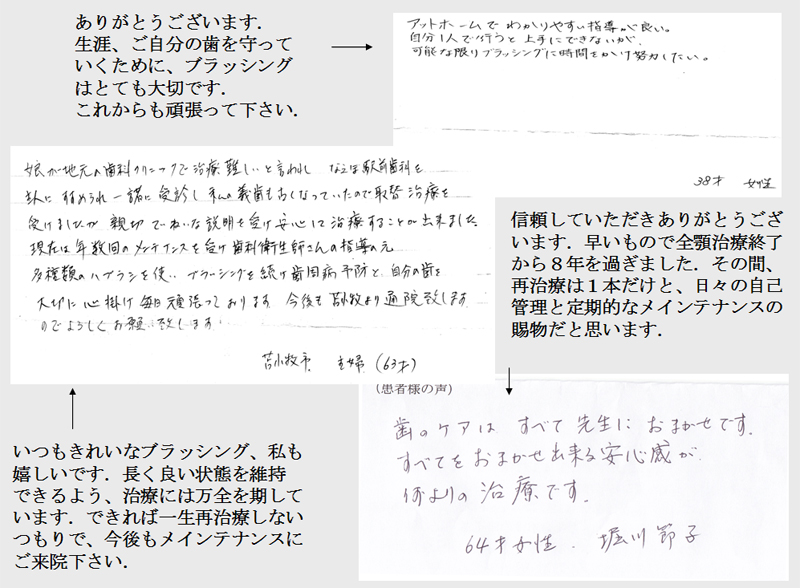 ありがとうございます．
生涯、ご自分の歯を守って
いくために、ブラッシング
はとても大切です．
これからも頑張って下さい．
アットホームで わかりやすい指導が良い。
自分1人で行うと 上手にできないが、
可能な限りブラッシングに時間をかけ努力したい。
38才 女性
娘が地元の歯科クリニックで治療難しいと言われ 駅前歯科を
に 勧められ 一諸に 受診し 私の義歯も古くなっていたので取替 治療を
受けましたが 親切 ていねいな説明を受け安心して治療することが出来ました。
現在は年数回のメンテナンスを受け歯科衛生師さんの指導の元
多種類のハブラシを使い ブラッシングを続け歯周病予防と 自分の歯を
大切に心掛け毎日頑張っております 今後も苫小牧より通院致します
のでよろしくお願い致します
苫小牧市 主婦 (63才)
信頼していただきありがとうござ
います．早いもので全顎治療終了
から８年を過ぎました．その間、
再治療は１本だけと、日々の自己
管理と定期的なメインテナンスの
賜物だと思います．
(患者様の声)
歯のケアは すべて先生に おまかせです．
すべてを おまかせ出来る安心感が
何よりの 治療です．
64才女性． 堀川 節子
いつもきれいなブラッシング、私も
嬉しいです．長く良い状態を維持
できるよう、治療には万全を期して
います．できれば一生再治療しない
つもりで、今後もメインテナンスに
ご来院下さい．